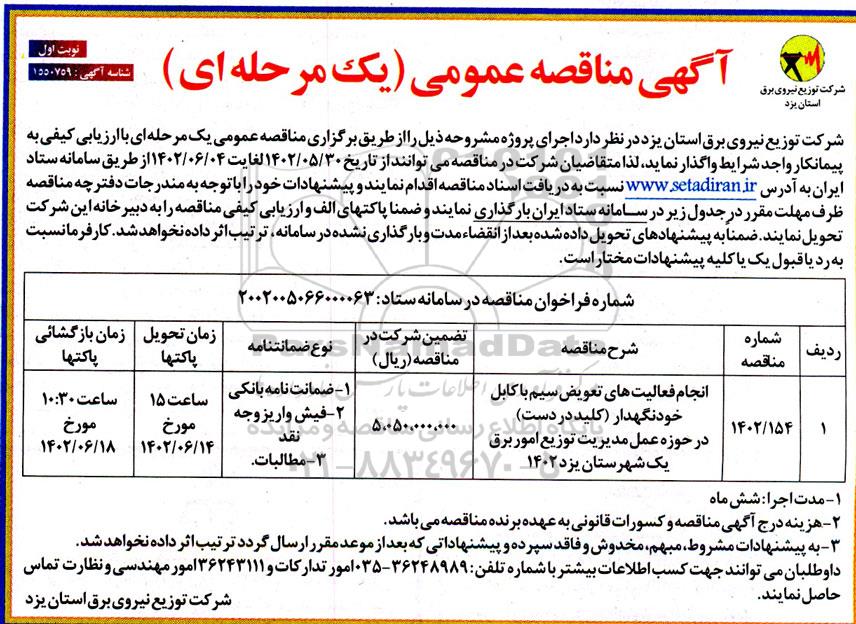 نوبت اول
شناسه آگهی : ۱۵۵۰۷۵۹
آگهی مناقصه عمومی (یک مرحله ای)
شرکت توزیع نیروی برق
استان یزد
شرکت توزیع نیروی برق استان یزد در نظر دارد اجرای پروژه مشروحه ذیل را از طریق برگزاری مناقصه عمومی یک مرحله ای با ارزیابی کیفی به
پیمانکار واجد شرایط واگذار نماید، لذا متقاضیان شرکت در مناقصه می توانند از تاریخ ۱۴۰۲/۰۵/۳۰ لغایت ۱۴۰۲/۰۶/۰۴ از طریق سامانه ستاد
ایران به آدرس www.setadiran.ir نسبت به دریافت اسناد مناقصه اقدام نمایند و پیشنهادات خود را با توجه به مندرجات دفترچه مناقصه
ظرف مهلت مقرر در جدول زیر در سامانه ستاد ایران بارگذاری نمایند و ضمنا پاکتهای الف و ارزیابی کیفی مناقصه را به دبیرخانه این شرکت
تحویل نمایند. ضمنا به پیشنهادهای تحویل داده شده بعد از انقضاء مدت و بارگذاری نشده در سامانه، ترتیب اثر داده نخواهد شد. کارفرما نسبت
به رد یا قبول یک یا کلیه پیشنهادات مختار است.
شماره فراخوان مناقصه در سامانه ستاد: ۲۰۰۲۰۰۵۰۶۶۰۰۰۰۶۳
ردیف
شماره
مناقصه
شرح مناقصه
تضمین شرکت در
مناقصه (ریال)
نوع ضمانتنامه
زمان تحویل
پاکتها
زمان بازگشائی
پاکتها
۱
۱۴۰۲/۱۵۴
انجام فعالیت های تعویض سیم با کابل
خودنگهدار (کلید در دست)
در حوزه عمل مدیریت توزیع امور برق
یک شهرستان یزد ۱۴۰۲
۵.۰۵۰.۰۰۰.۰۰۰
۱-ضمانت نامه بانکی
۲-فیش واریز وجه
نقد
۳-مطالبات.
ساعت ۱۵
مورخ
۱۴۰۲/۰۶/۱۴
ساعت ۱۰:۳۰
مورخ
۱۴۰۲/۰۶/۱۸
۱-مدت اجرا: شش ماه
۲-هزینه درج آگهی مناقصه و کسورات قانونی به عهده برنده مناقصه می باشد.
۳-به پیشنهادات مشروط، مبهم، مخدوش و فاقد سپرده و پیشنهاداتی که بعد از موعد مقرر ارسال گردد ترتیب اثر داده نخواهد شد.
داوطلبان می توانند جهت کسب اطلاعات بیشتر با شماره تلفن: ۳۶۲۴۸۹۸۹-۰۳۵ امور تدارکات و ۳۶۲۴۳۱۱۱ امور مهندسی و نظارت تماس
حاصل نمایند.
شرکت توزیع نیروی برق استان یزد